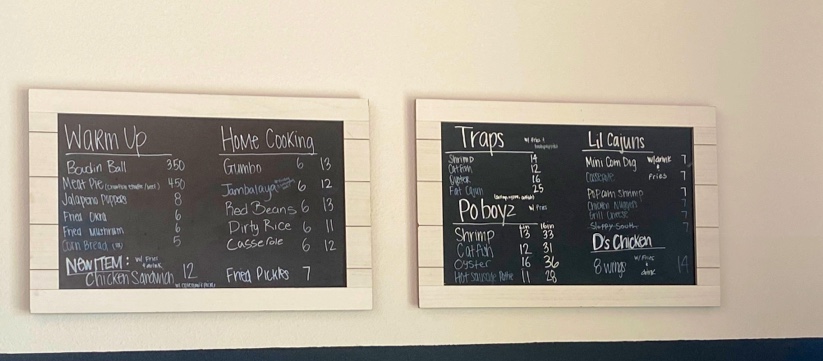 Warm Up
Boudin Ball 350
Meat Pie 450
Jalapeno Poppers 8
Fried Okra 6
Fried Mushroom 6
Corn Bread 5
NEW ITEM: w/ Fries & drink
Chicken Sandwich 12
Home Cooking
Gumbo 6 13
Jambalaya 6 12
Red Beans 6 13
Dirty Rice 6 11
Casserole 6 12
Fried Pickles 7
Traps w/ Fries &
Shrimp 14
Catfish 12
Oyster 16
Fat Cajun 25
Po boyz w/ Fries
Shrimp 13 33
Catfish 12 31
Oyster 16 36
Hot Sausage 11 28
Lil Cajuns
Mini Corn Dog w/drink & Fries 7
Casserole 7
Popcorn Shrimp 7
Chicken Nuggets 7
Grill Cheese 7
D's Chicken
8 wings w/ Fries & drink 14